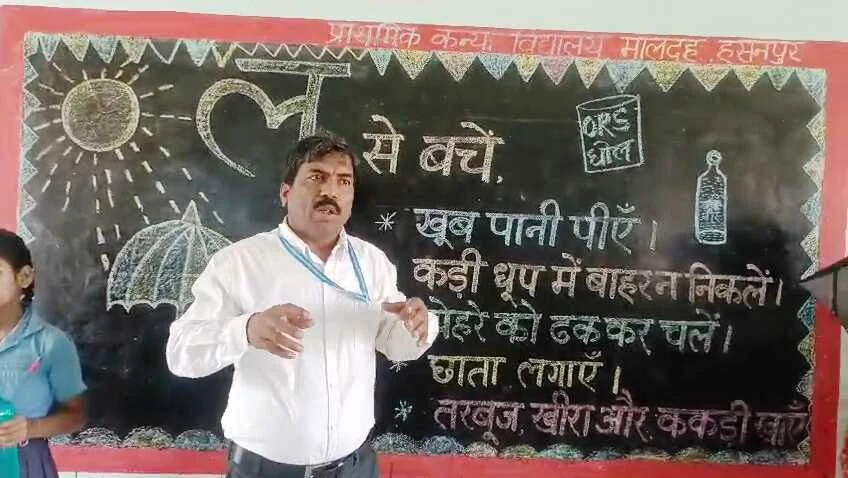 प्राथमिक कन्या विद्यालय, मालदह, हसनपुर
ल से बचें,
ORS
घोल
* खूब पानी पीएँ।
कड़ी धूप में बाहर न निकलें।
को ढक कर चलें।
छाता लगाएँ।
* तरबूज, खीरा और ककड़ी खाएँ